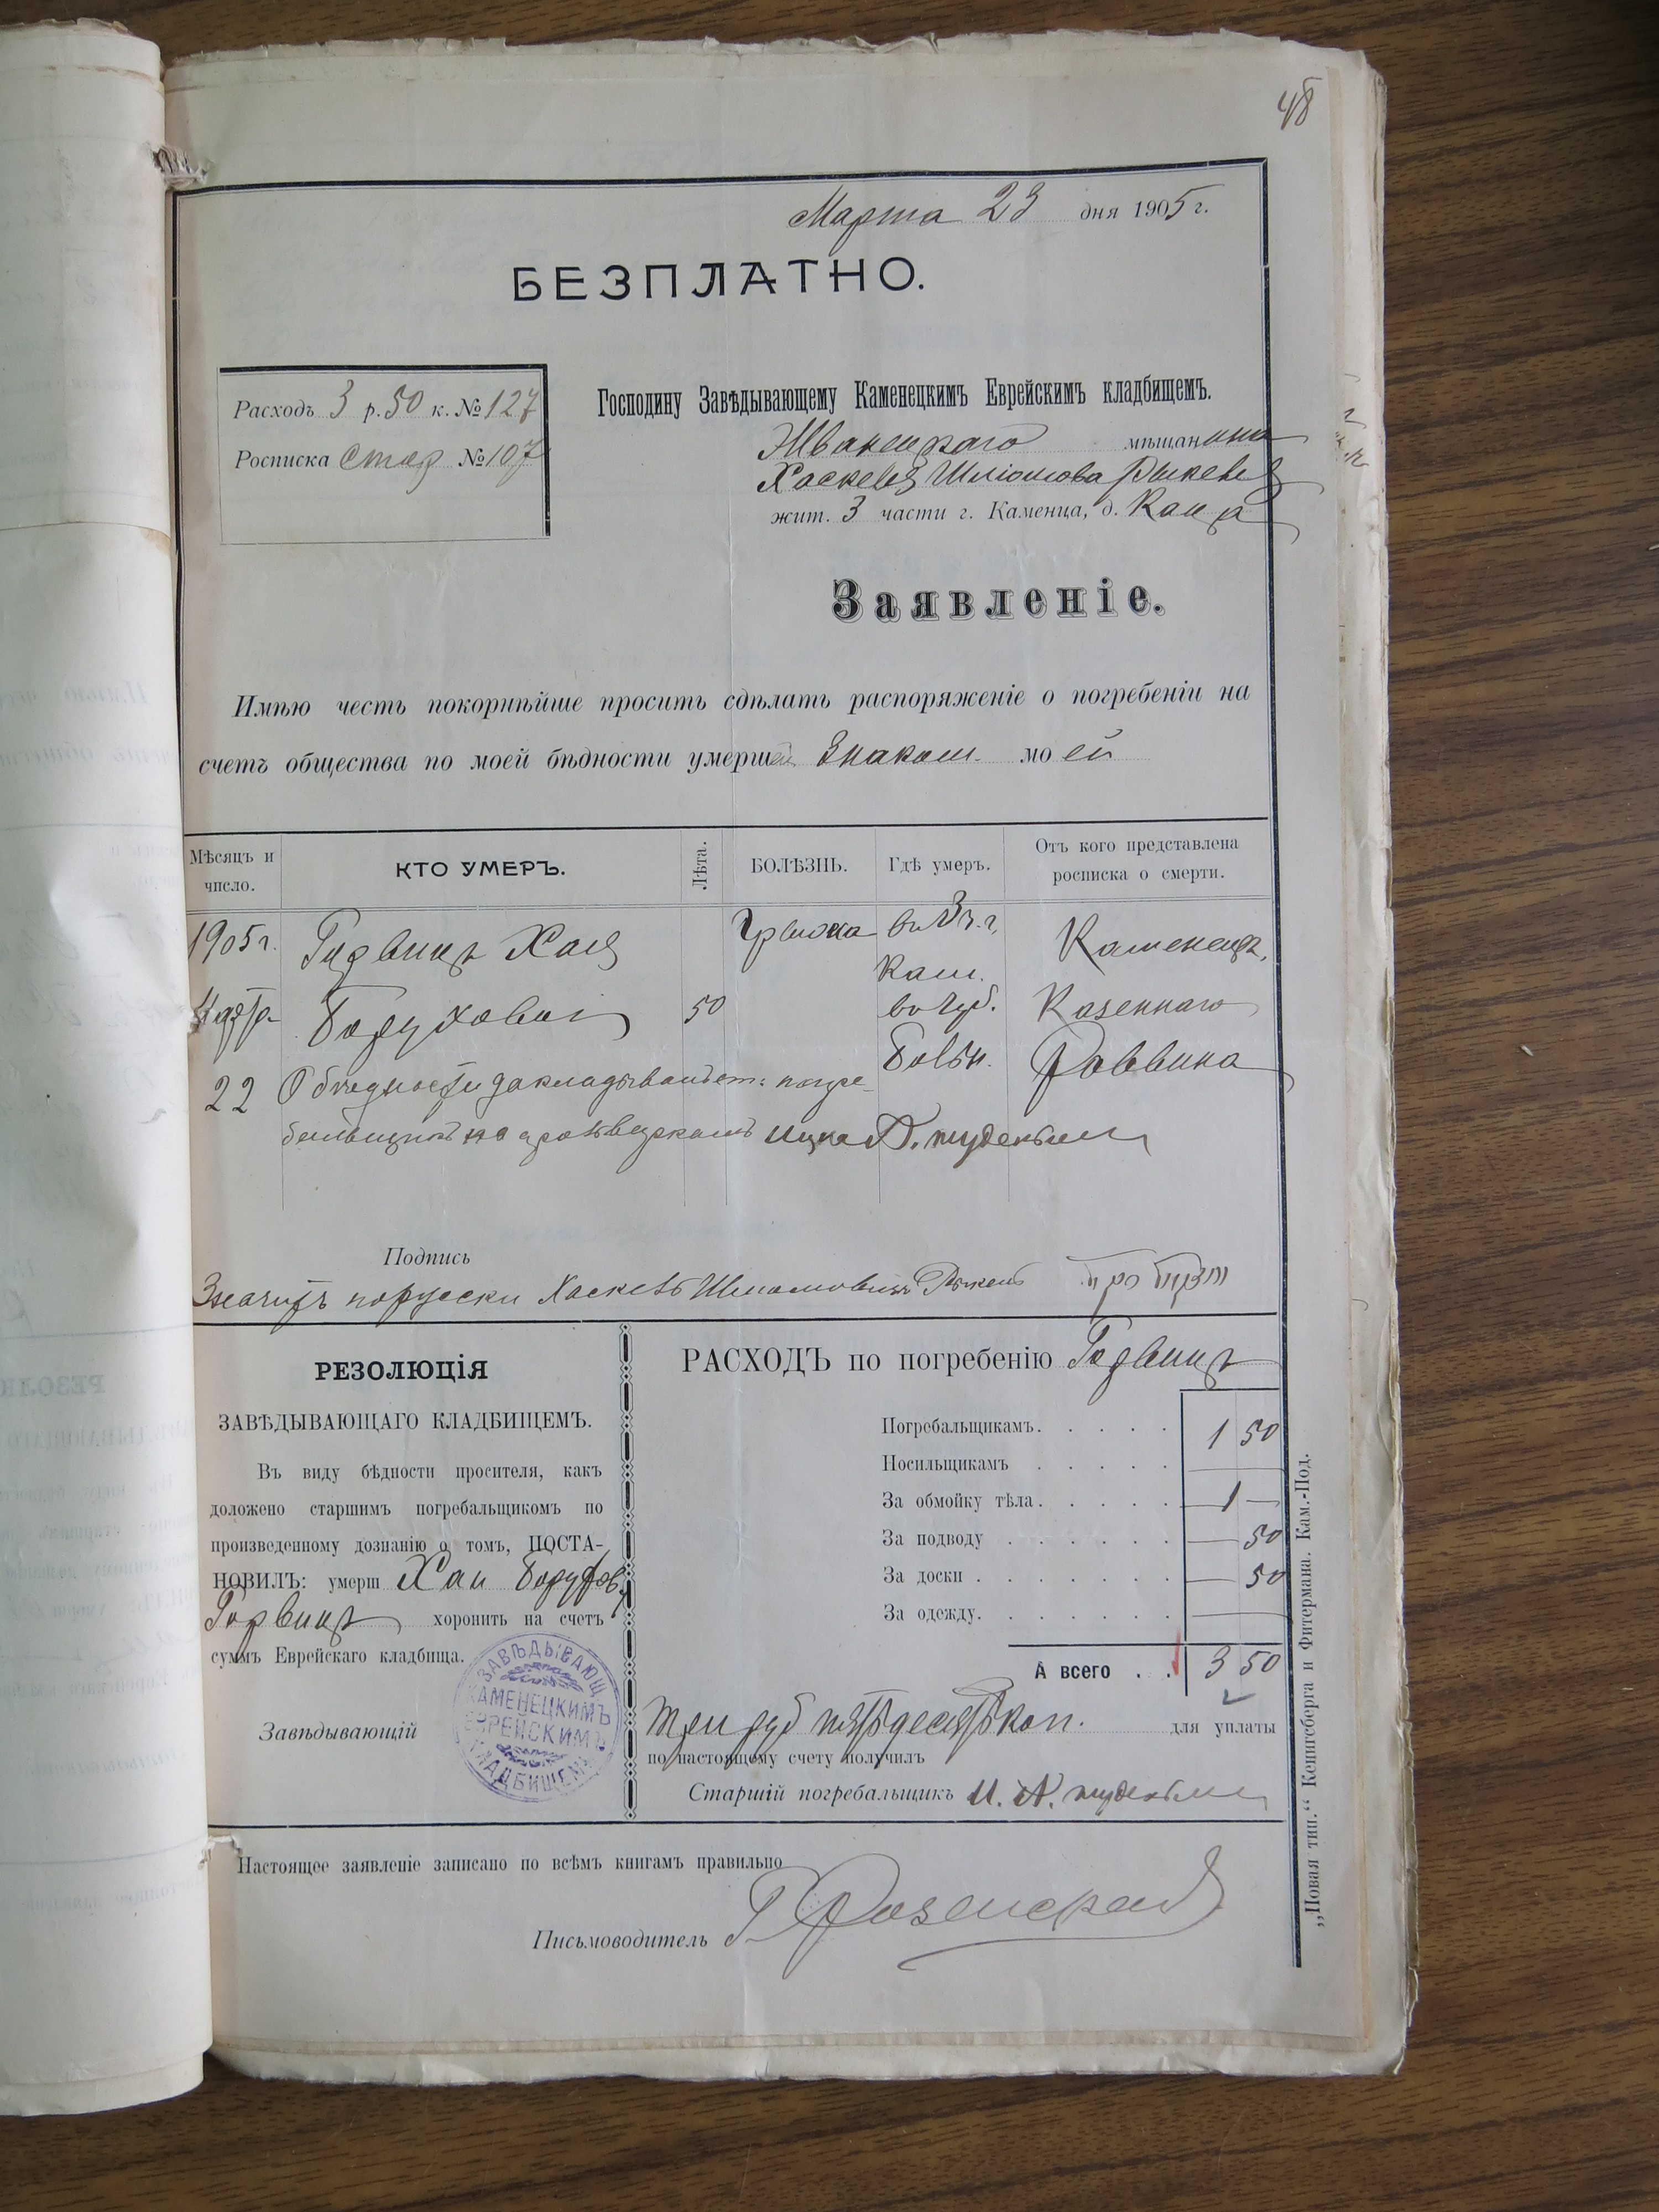 48
Марта 23 дня 1905 г.
БЕЗПЛАТНО.
Расходъ 3 р. 50 к. № 127
Росписка стар № 107
Господину Завѣдывающему Каменецкимъ Еврейскимъ кладбищемъ.
Жванецкаго мѣщанина
Хаскеля Шліомова
жит. 3 части г. Каменца, д. Каца
Заявленіе.
Имѣю честь покорнѣйше просить сдѣлать распоряженіе о погребеніи на
счетъ общества по моей бѣдности умершей Знаком. моей
Мѣсяцъ и число.
КТО УМЕРЪ.
Лѣта.
БОЛѢЗНЬ.
Гдѣ умеръ.
Отъ кого представлена росписка о смерти.
1905 г.
22
Гурвицъ Хая
Борухова
50
Грыжа
въ 3 ч. г.
Кам.
въ губ.
больн.
Каменецк.
Казеннаго
Раввина
О бѣдности
Подпись
Значитъ порусски Хаскель Шліомовичъ
РЕЗОЛЮЦІЯ
ЗАВѢДЫВАЮЩАГО КЛАДБИЩЕМЪ.
Въ виду бѣдности просителя, какъ
доложено старшимъ погребальщикомъ по
произведенному дознанію о томъ, ПОСТА-
НОВИЛЪ: умерш Хаи Борухов.
Гурвицъ хоронить на счетъ
суммъ Еврейскаго кладбища.
Завѣдывающій
ЗАВѢДЫВАЮЩ
КАМЕНЕЦКИМЪ
ЕВРЕЙСКИМЪ
КЛАДБИЩЕМЪ
РАСХОДЪ по погребенію Гурвицъ
Погребальщикамъ. 1 50
Носильщикамъ —
За обмойку тѣла. 1 —
За подводу — 50
За доски — 50
За одежду. —
А всего 3 50
Три руб пятьдесятъ коп. для уплаты
по настоящему счету получилъ
Старшій погребальщикъ
Настоящее заявленіе записано по всѣмъ книгамъ правильно
Письмоводитель
„Новая тип.“ Кенигсберга и Фитермана. Кам.-Под.